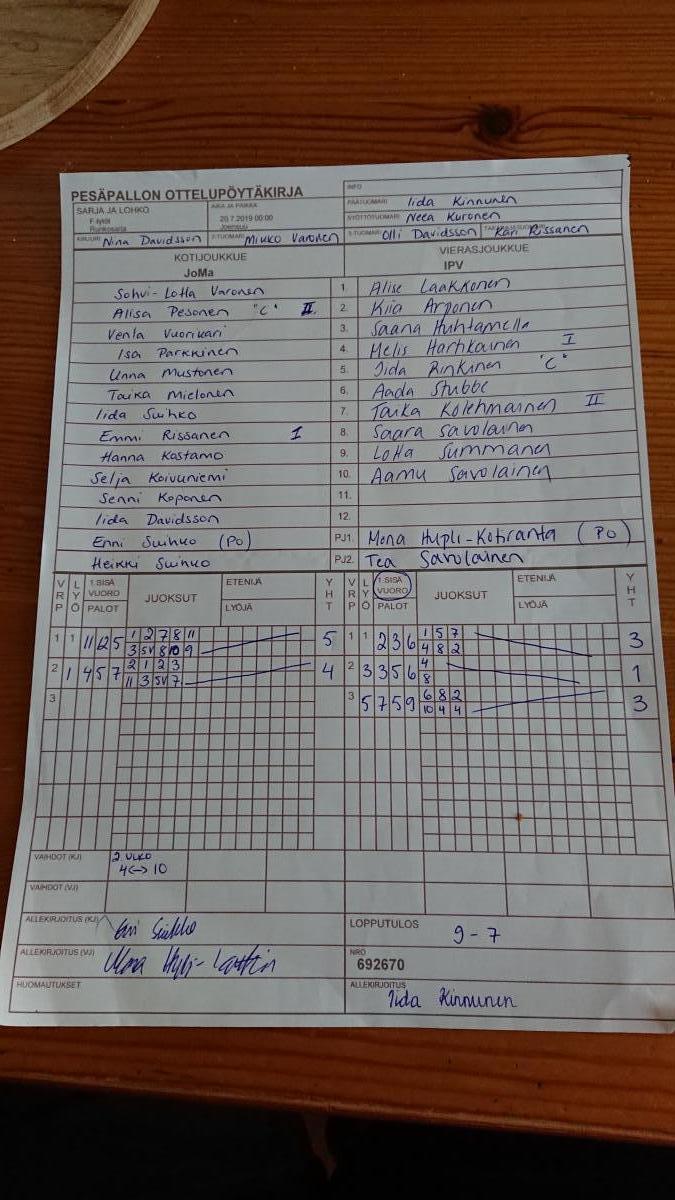 PESÄPALLON OTTELUPÖYTÄKIRJA
INFO
SARJA JA LOHKO
F-tytöt
Runkosarja
AIKA JA PAIKKA
20.7.2019 00:00
Joensuu
PÄÄTUOMARI Iida Kinnunen
SYÖTTÖTUOMARI Neea Kuronen
KIRJURI Nina Davidsson 2-TUOMARI Mikko Varonen 3-TUOMARI Olli Davidsson Kari Rissanen
KOTIJOUKKUE
JoMa
VIERASJOUKKUE
IPV
Sohvi-Lotta Varonen 1. Alise Laakkonen
Alisa Pesonen "C" II 2. Kiia Arponen
Venla Vuorikari 3. Saana Huhtamella
Isa Parkkinen 4. Melis Hartikainen I
Unna Mustonen 5. Iida Rinkinen "C"
Taika Mielonen 6. Aada Stubbe
Iida Suihko 7. Taika Kolehmainen II
Emmi Rissanen I 8. Saara Savolainen
Hanna Kostamo 9. Lotta Summanen
Selja Koivuniemi 10. Aamu Savolainen
Senni Koponen 11.
Iida Davidsson 12.
Enni Suihko (PO) PJ1. Mona Hupli-Kotiranta (PO)
Heikki Suihko PJ2. Tea Savolainen
VRP LYÖ 1.SISÄ VUORO PALOT JUOKSUT ETENIJÄ LYÖJÄ YHT VRP LYÖ 1.SISÄ VUORO PALOT JUOKSUT ETENIJÄ LYÖJÄ YHT
1 1 11 12 5 1 2 7 8 11 5 1 1 2 3 6 1 5 7 3
3 5V 8 10 9 4 8 2
2 1 4 5 7 2 1 2 3 4 2 3 3 5 6 4 1
11 3 5V 7 8
3 3 5 7 5 9 6 8 2 3
10 4 4
VAIHDOT (KJ) 2. ULKO
4<->10
VAIHDOT (VJ)
ALLEKIRJOITUS (KJ) LOPPUTULOS 9-7
ALLEKIRJOITUS (VJ) NRO
692670
HUOMAUTUKSET ALLEKIRJOITUS
Iida Kinnunen